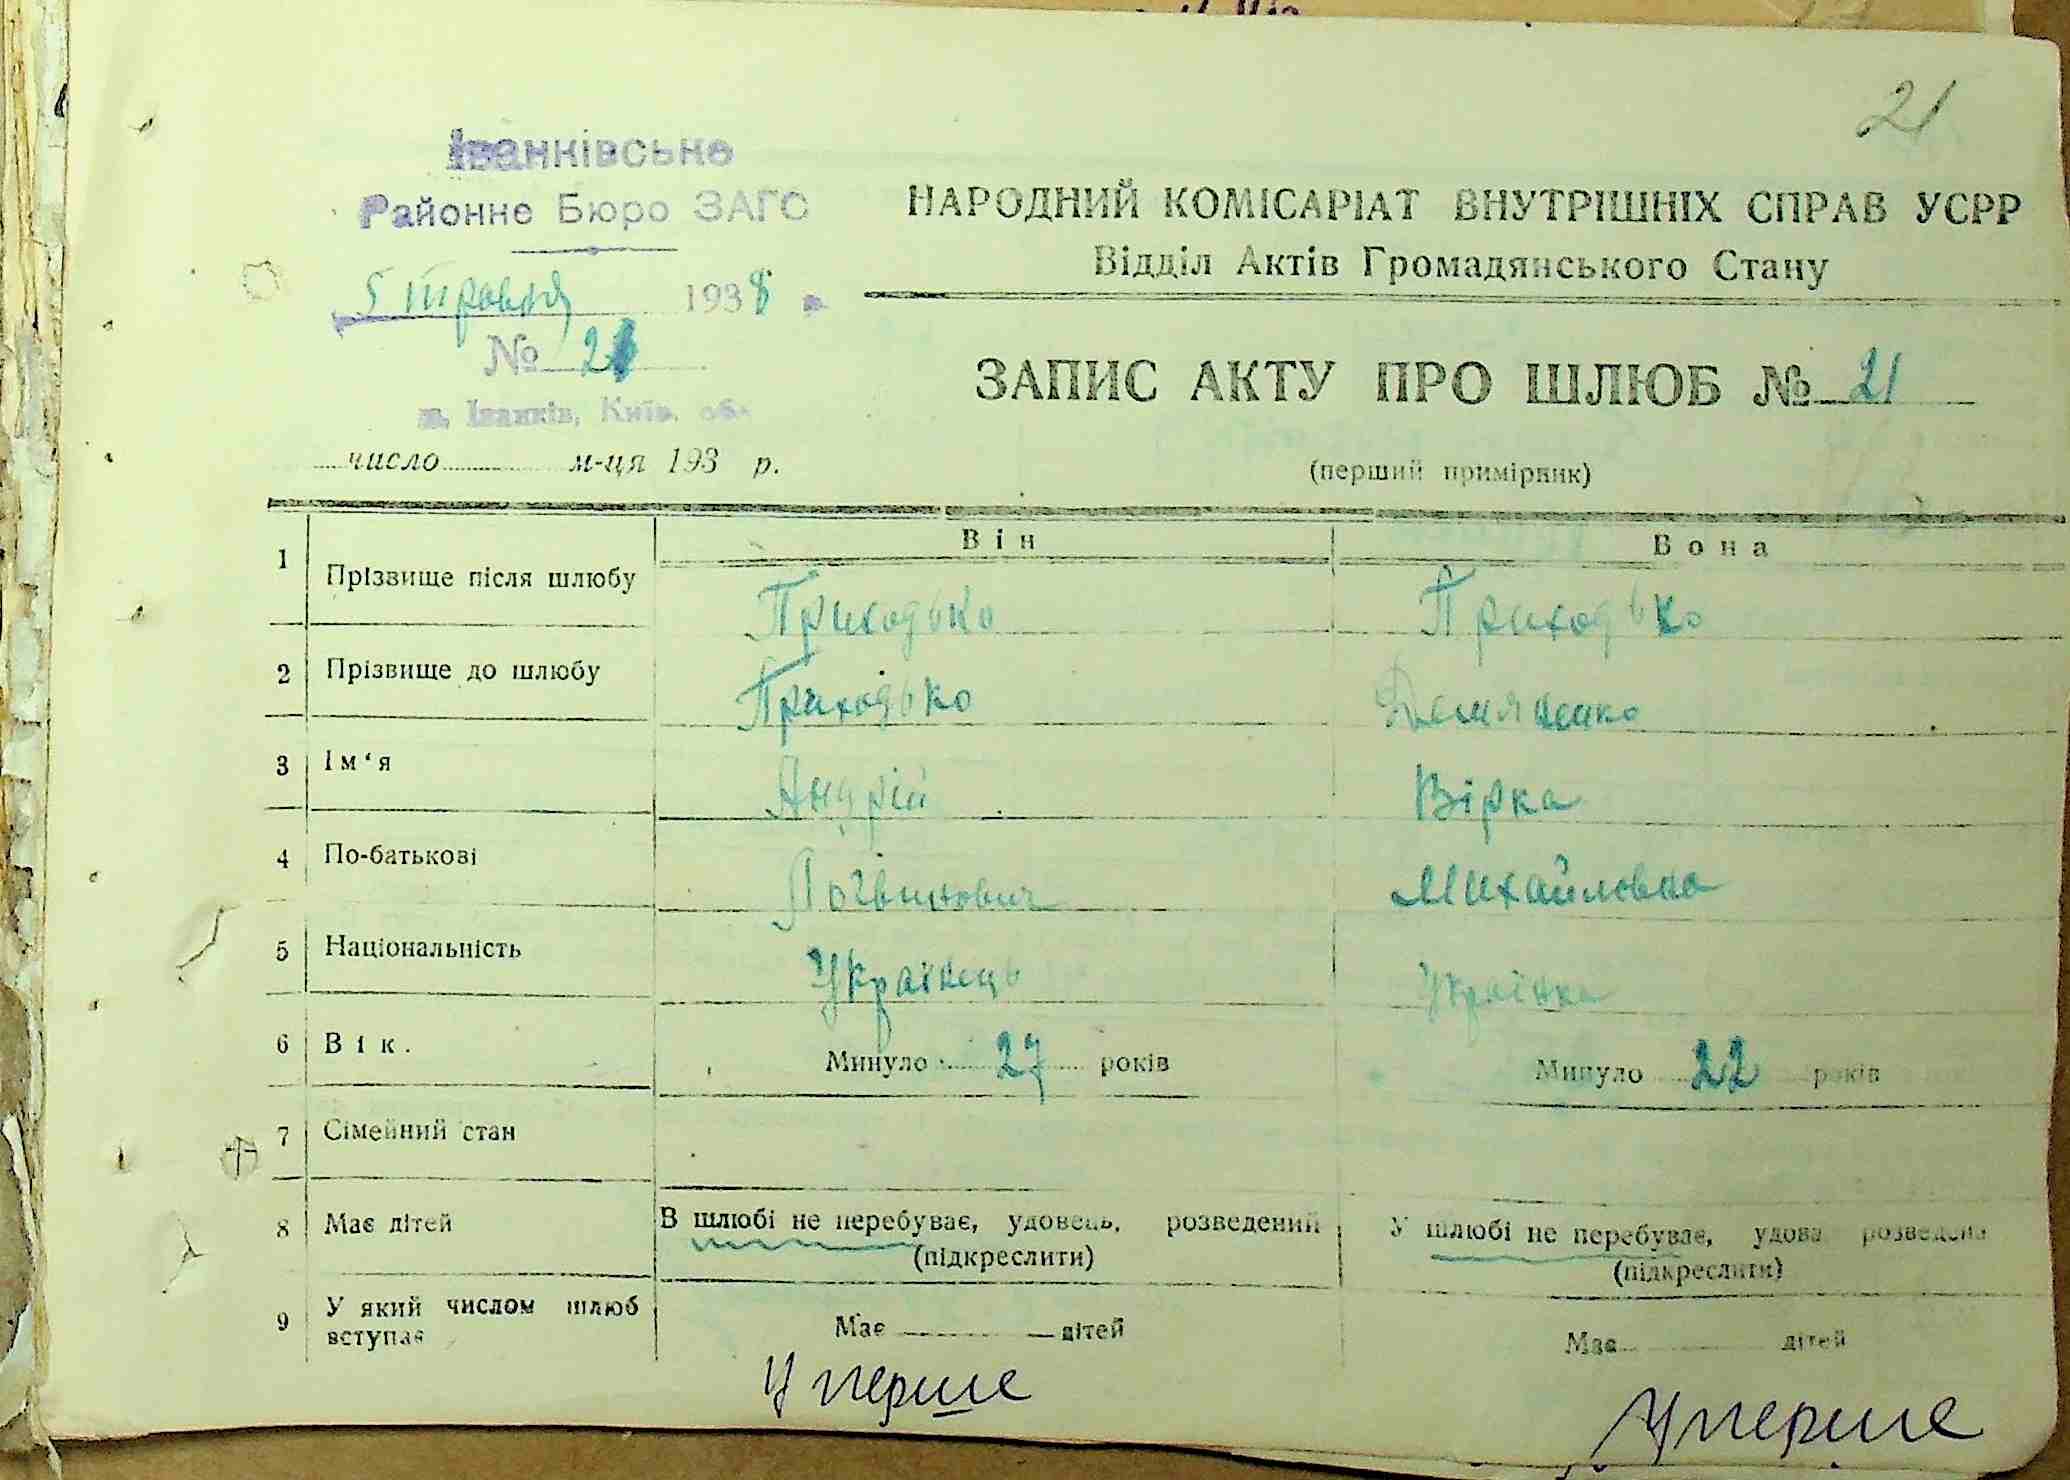 21
Іванківське
Районне Бюро ЗАГС
5 травня 1938 р.
№ 21
м. Іванків, Київ. обл.
число м-ця 193 р.
НАРОДНИЙ КОМІСАРІАТ ВНУТРІШНІХ СПРАВ УСРР
Відділ Актів Громадянського Стану
ЗАПИС АКТУ ПРО ШЛЮБ № 21
(перший примірник)
Він Вона
1 Прізвище після шлюбу Приходько Приходько
2 Прізвище до шлюбу Приходько Демяненко
3 Ім'я Андрій Вірка
4 По-батькові Логвинович Михайловна
5 Національність Українець Українка
6 Вік. Минуло 27 років Минуло 22 років
7 Сімейний стан
8 Має дітей В шлюбі не перебуває, удовець, розведений У шлюбі не перебуває, удова розведена
(підкреслити) (підкреслити)
9 У який числом шлюб
вступає Має дітей Має дітей
Уперше Уперше